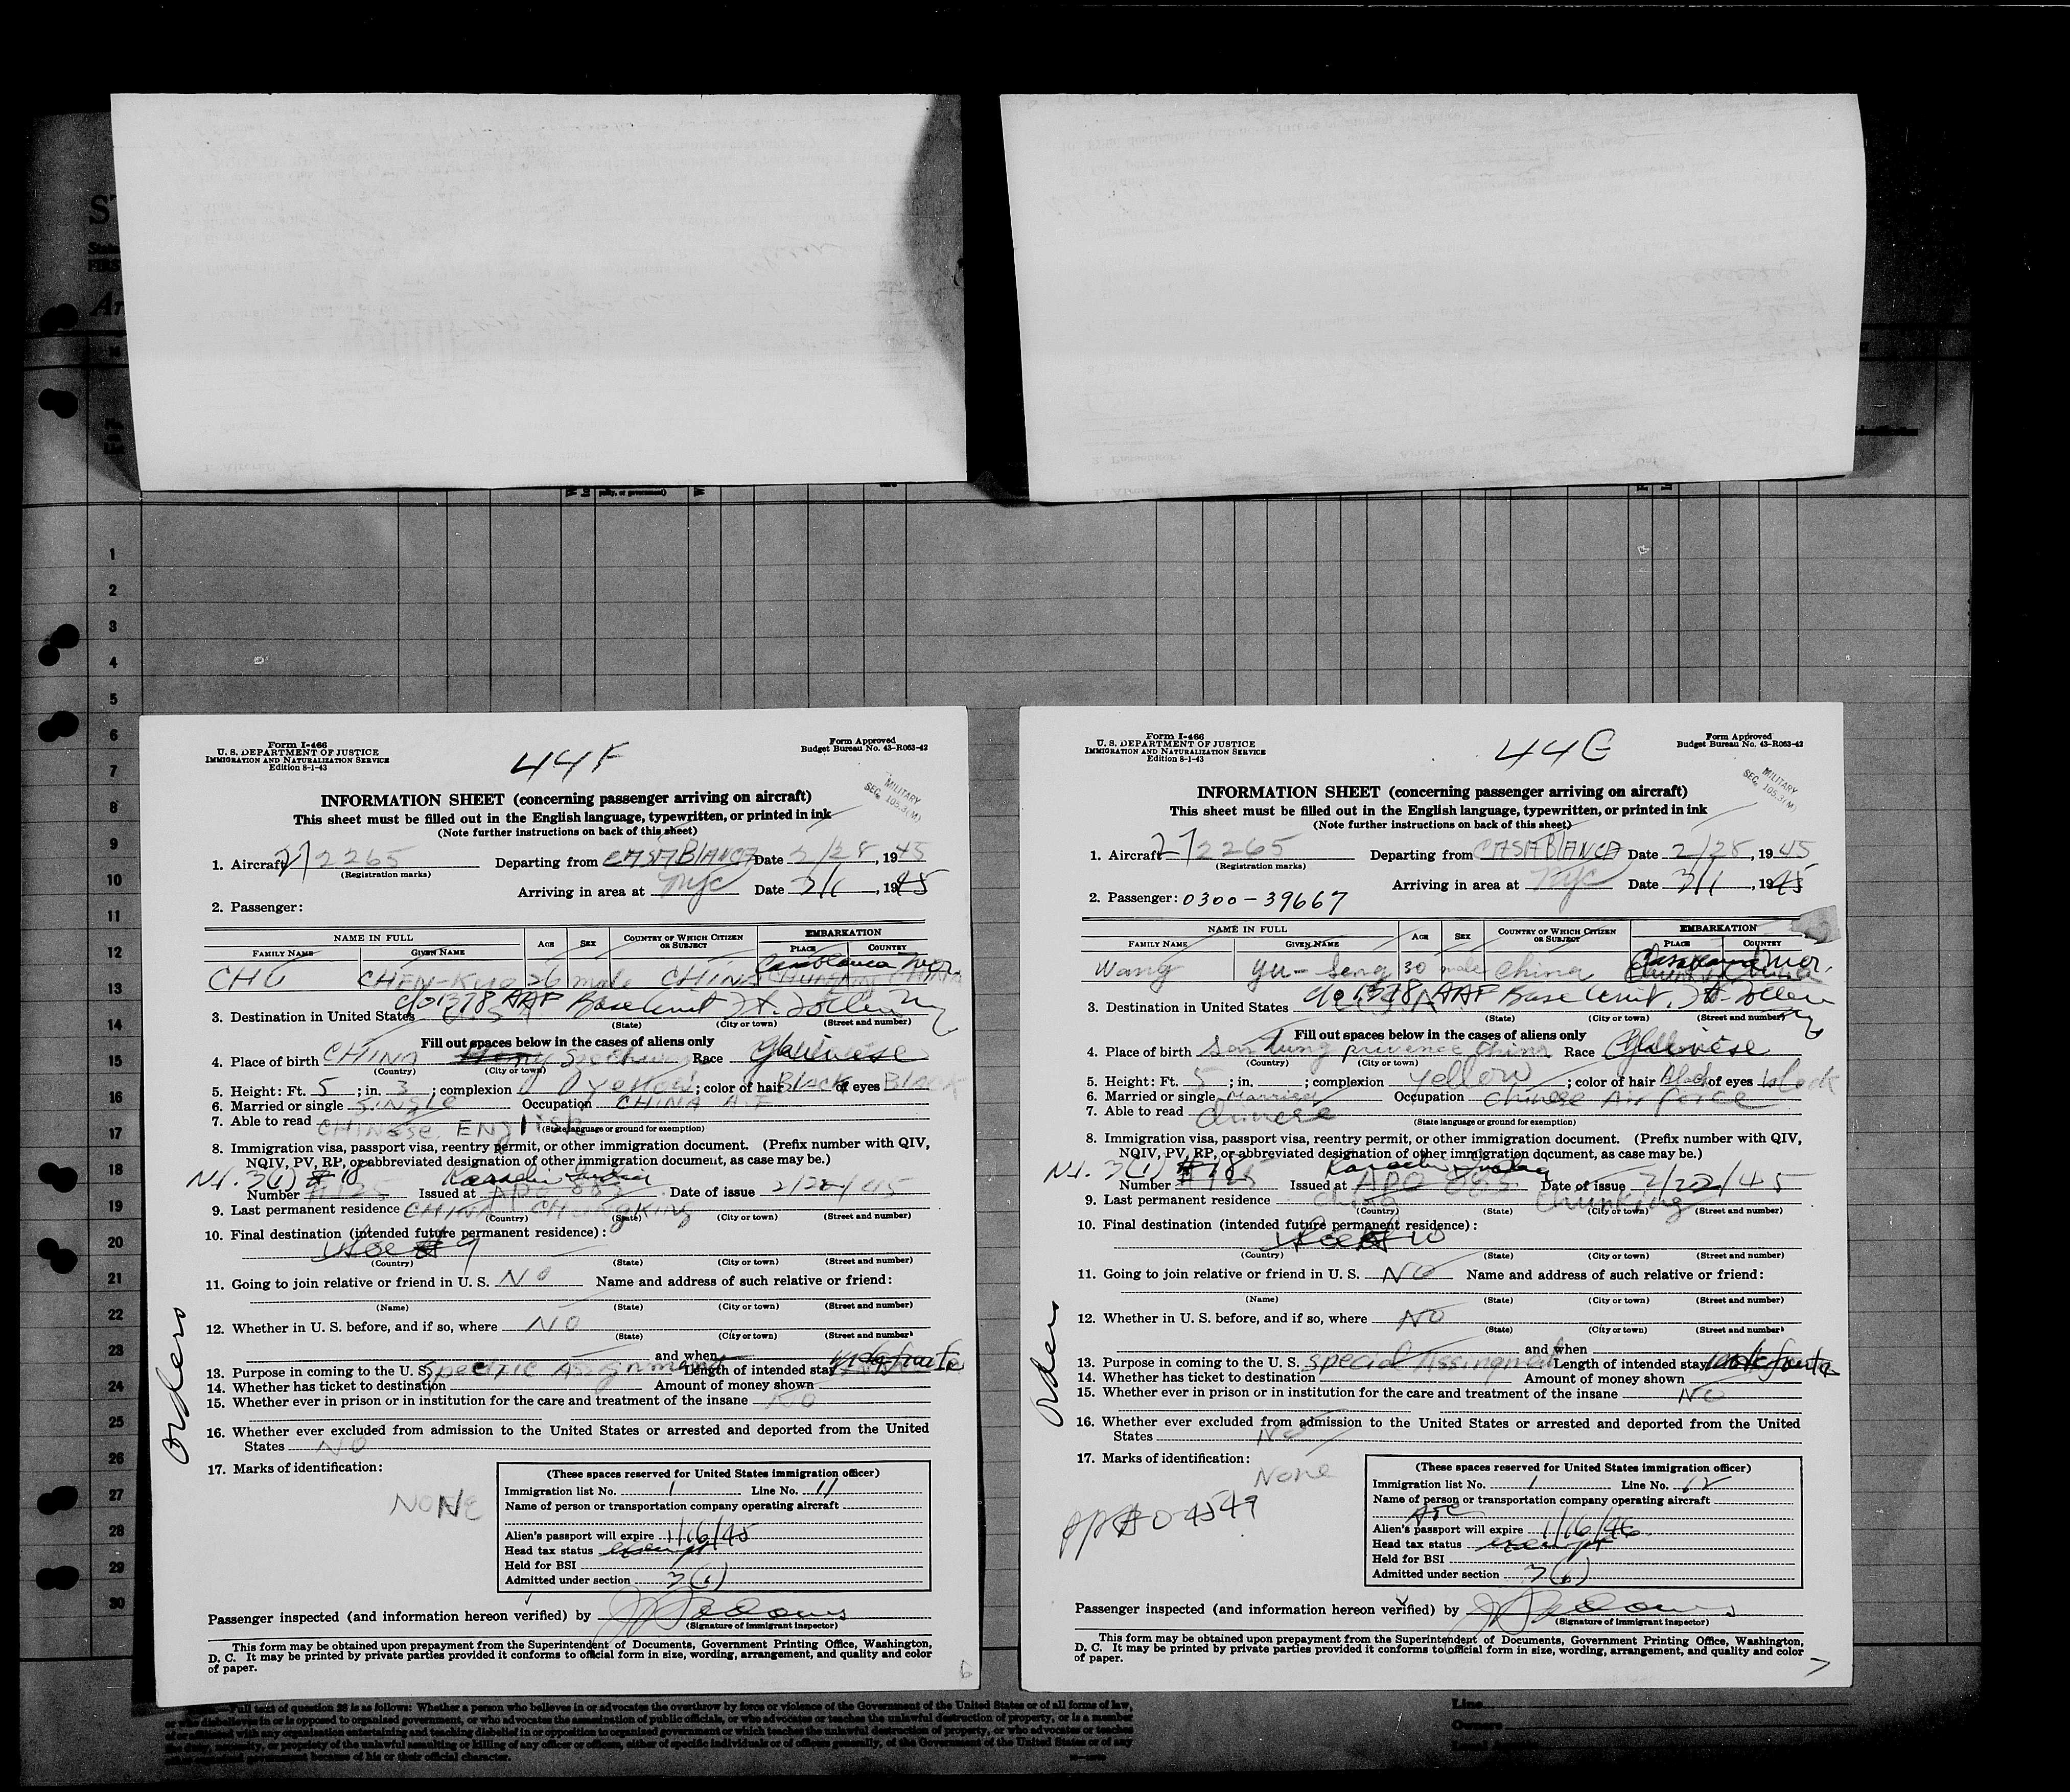 1
2
3
4
5
6
7
8
9
10
11
12
13
14
15
16
17
18
19
20
21
22
23
24
25
26
27
28
29
30
Form I-466
U. S. DEPARTMENT OF JUSTICE
IMMIGRATION AND NATURALIZATION SERVICE
Edition 8-1-43
44F
Form Approved
Budget Bureau No. 43-R063-42
MILITARY
SEC. 105.3(M)
INFORMATION SHEET (concerning passenger arriving on aircraft)
This sheet must be filled out in the English language, typewritten, or printed in ink
(Note further instructions on back of this sheet)
1. Aircraft 272265 Departing from CASABLANCA Date 2/28, 1945
(Registration marks)
Arriving in area at NYC Date 3/1, 1945
2. Passenger:
NAME IN FULL AGE SEX COUNTRY OF WHICH CITIZEN OR SUBJECT EMBARKATION
FAMILY NAME GIVEN NAME PLACE COUNTRY
CHU CHEN-KUO 26 male CHINA Casablanca Mor.
3. Destination in United States c/o 1378 AAF Base Unit Ft. Totten NY
(State) (City or town) (Street and number)
Fill out spaces below in the cases of aliens only
4. Place of birth CHINA Szechwan Race Chinese
(Country) (City or town)
5. Height: Ft. 5; in. 3; complexion yellow; color of hair Black of eyes Black
6. Married or single single Occupation CHINA A.F
7. Able to read CHINESE, ENglish
(State language or ground for exemption)
8. Immigration visa, passport visa, reentry permit, or other immigration document. (Prefix number with QIV,
NQIV, PV, RP, or abbreviated designation of other immigration document, as case may be.)
3(1) #18 Karachi India
Number Issued at APO 883 Date of issue 2/22/45
9. Last permanent residence CHINA CHUNGKING
(Country) (State) (City or town) (Street and number)
10. Final destination (intended future permanent residence):
(Country) (State) (City or town) (Street and number)
11. Going to join relative or friend in U. S. NO Name and address of such relative or friend:
(Name) (State) (City or town) (Street and number)
12. Whether in U. S. before, and if so, where NO
(State) (City or town) (Street and number)
and when
13. Purpose in coming to the U. S. Specific Assignment Length of intended stay indefinite
14. Whether has ticket to destination Amount of money shown
15. Whether ever in prison or in institution for the care and treatment of the insane NO
16. Whether ever excluded from admission to the United States or arrested and deported from the United
States NO
17. Marks of identification:
NONE
Orders
(These spaces reserved for United States immigration officer)
Immigration list No. 1 Line No. 11
Name of person or transportation company operating aircraft
Alien's passport will expire 1/16/45
Head tax status exempt
Held for BSI
Admitted under section 3(1)
Passenger inspected (and information hereon verified) by
(Signature of immigrant inspector)
This form may be obtained upon prepayment from the Superintendent of Documents, Government Printing Office, Washington,
D. C. It may be printed by private parties provided it conforms to official form in size, wording, arrangement, and quality and color
of paper.
6
Form I-466
U. S. DEPARTMENT OF JUSTICE
IMMIGRATION AND NATURALIZATION SERVICE
Edition 8-1-43
44G
Form Approved
Budget Bureau No. 43-R063-42
MILITARY
SEC. 105.3(M)
INFORMATION SHEET (concerning passenger arriving on aircraft)
This sheet must be filled out in the English language, typewritten, or printed in ink
(Note further instructions on back of this sheet)
1. Aircraft 272265 Departing from CASABLANCA Date 2/28, 1945
(Registration marks)
Arriving in area at NYC Date 3/1, 1945
2. Passenger: 0300-39667
NAME IN FULL AGE SEX COUNTRY OF WHICH CITIZEN OR SUBJECT EMBARKATION
FAMILY NAME GIVEN NAME PLACE COUNTRY
Wang Yu-Seng 30 male China Casablanca Mor.
3. Destination in United States c/o 1378 AAF Base Unit, Ft. Totten NY
(State) (City or town) (Street and number)
Fill out spaces below in the cases of aliens only
4. Place of birth Santung provence China Race Chinese
(Country) (City or town)
5. Height: Ft. 5; in. ; complexion Yellow; color of hair black of eyes black
6. Married or single Married Occupation Chinese Air Force
7. Able to read Chinese
(State language or ground for exemption)
8. Immigration visa, passport visa, reentry permit, or other immigration document. (Prefix number with QIV,
NQIV, PV, RP, or abbreviated designation of other immigration document, as case may be.)
3(1) #18 Karachi India
Number Issued at APO 883 Date of issue 2/22/45
9. Last permanent residence China Chunking
(Country) (State) (City or town) (Street and number)
10. Final destination (intended future permanent residence):
(Country) (State) (City or town) (Street and number)
11. Going to join relative or friend in U. S. NO Name and address of such relative or friend:
(Name) (State) (City or town) (Street and number)
12. Whether in U. S. before, and if so, where NO
(State) (City or town) (Street and number)
and when
13. Purpose in coming to the U. S. special Assingment Length of intended stay indefinite
14. Whether has ticket to destination Amount of money shown
15. Whether ever in prison or in institution for the care and treatment of the insane NO
16. Whether ever excluded from admission to the United States or arrested and deported from the United
States No
17. Marks of identification:
None
PP# 0-4549
Orders
(These spaces reserved for United States immigration officer)
Immigration list No. 1 Line No. 12
Name of person or transportation company operating aircraft
ATC
Alien's passport will expire 1/16/46
Head tax status exempt
Held for BSI
Admitted under section 3(1)
Passenger inspected (and information hereon verified) by
(Signature of immigrant inspector)
This form may be obtained upon prepayment from the Superintendent of Documents, Government Printing Office, Washington,
D. C. It may be printed by private parties provided it conforms to official form in size, wording, arrangement, and quality and color
of paper.
7
Full text of question 28 is as follows: Whether a person who believes in or advocates the overthrow by force or violence of the Government of the United States or of all forms of law,
or who disbelieves in or is opposed to organized government, or who advocates the assassination of public officials, or who advocates or teaches the unlawful destruction of property, or is a member
of or affiliated with any organization entertaining and teaching disbelief in or opposition to organized government or which teaches the unlawful destruction of property, or who advocates or teaches
the duty, necessity, or propriety of the unlawful assaulting or killing of any officer or officers, either of specific individuals or of officers generally, of the Government of the United States or of any
other organized government because of his or their official character.
Line
Owners